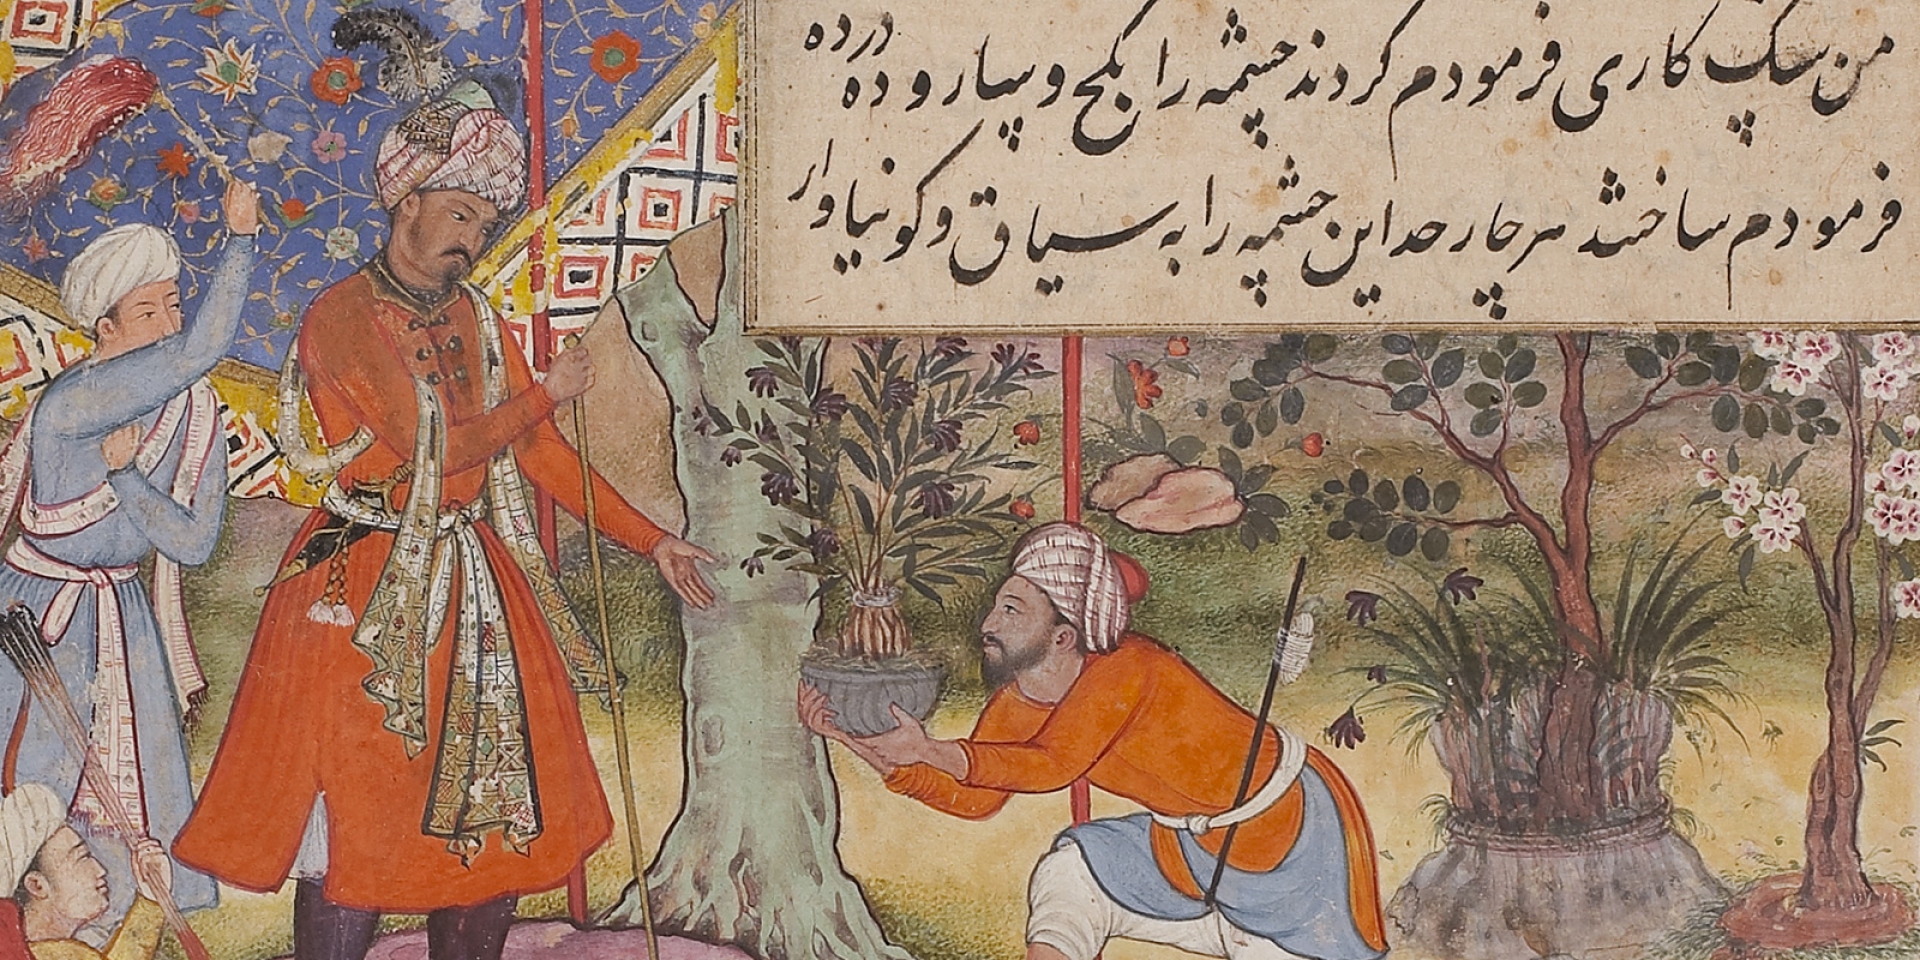 من سنک کاری فرمودم کردند چشمه را بکج و سارو ده درده
فرمودم ساختند هر چار حد این چشمه را به سیاق و کونیاوار